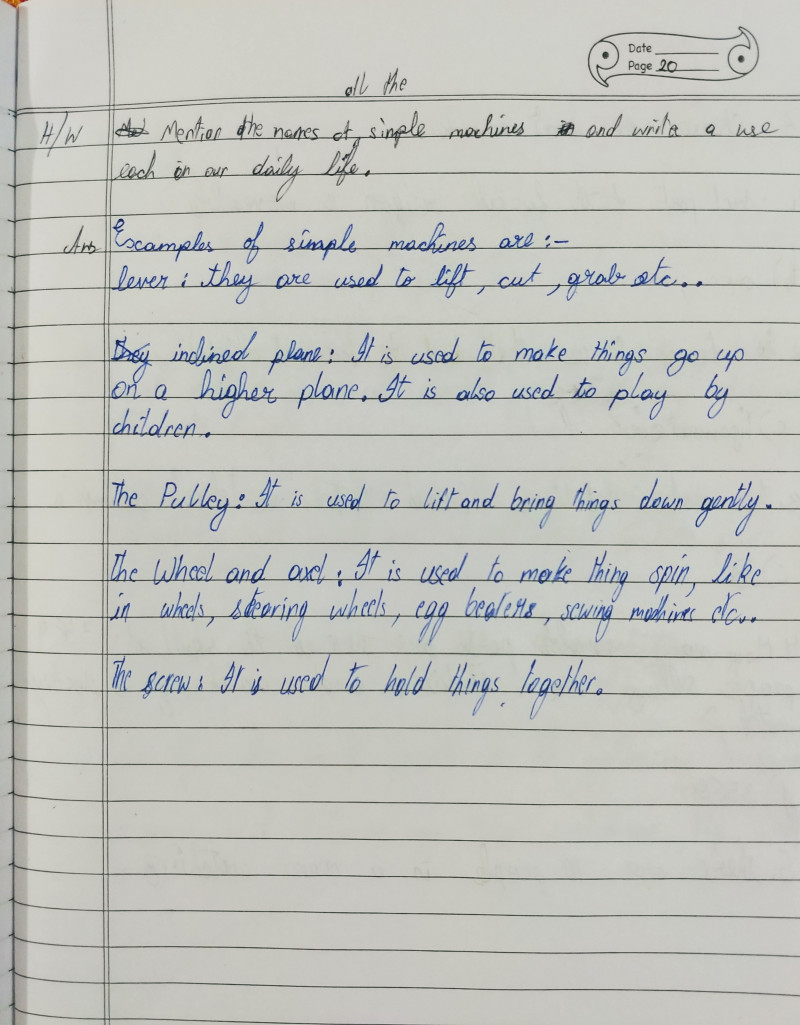 Date
Page 20
all the
H/W Mention the names of simple machines and write a use
each in our daily life.
Ans Examples of simple machines are :-
lever : they are used to lift, cut, grab etc...
inclined plane : It is used to make things go up
on a higher plane. It is also used to play by
children.
The Pulley : It is used to lift and bring things down gently.
The Wheel and axel : It is used to make thing spin, like
in wheels, stearing wheels, egg beaters, sewing machines etc...
The screw : It is used to hold things together.